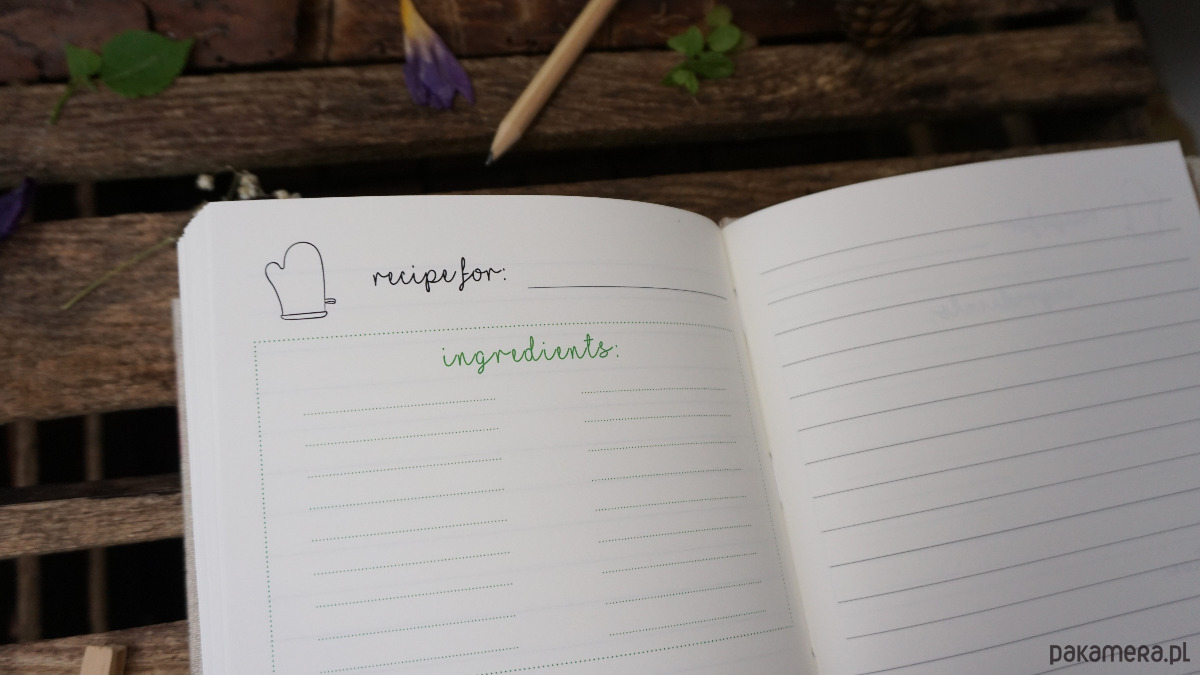 recipe for:
ingredients:
pakamera.pl